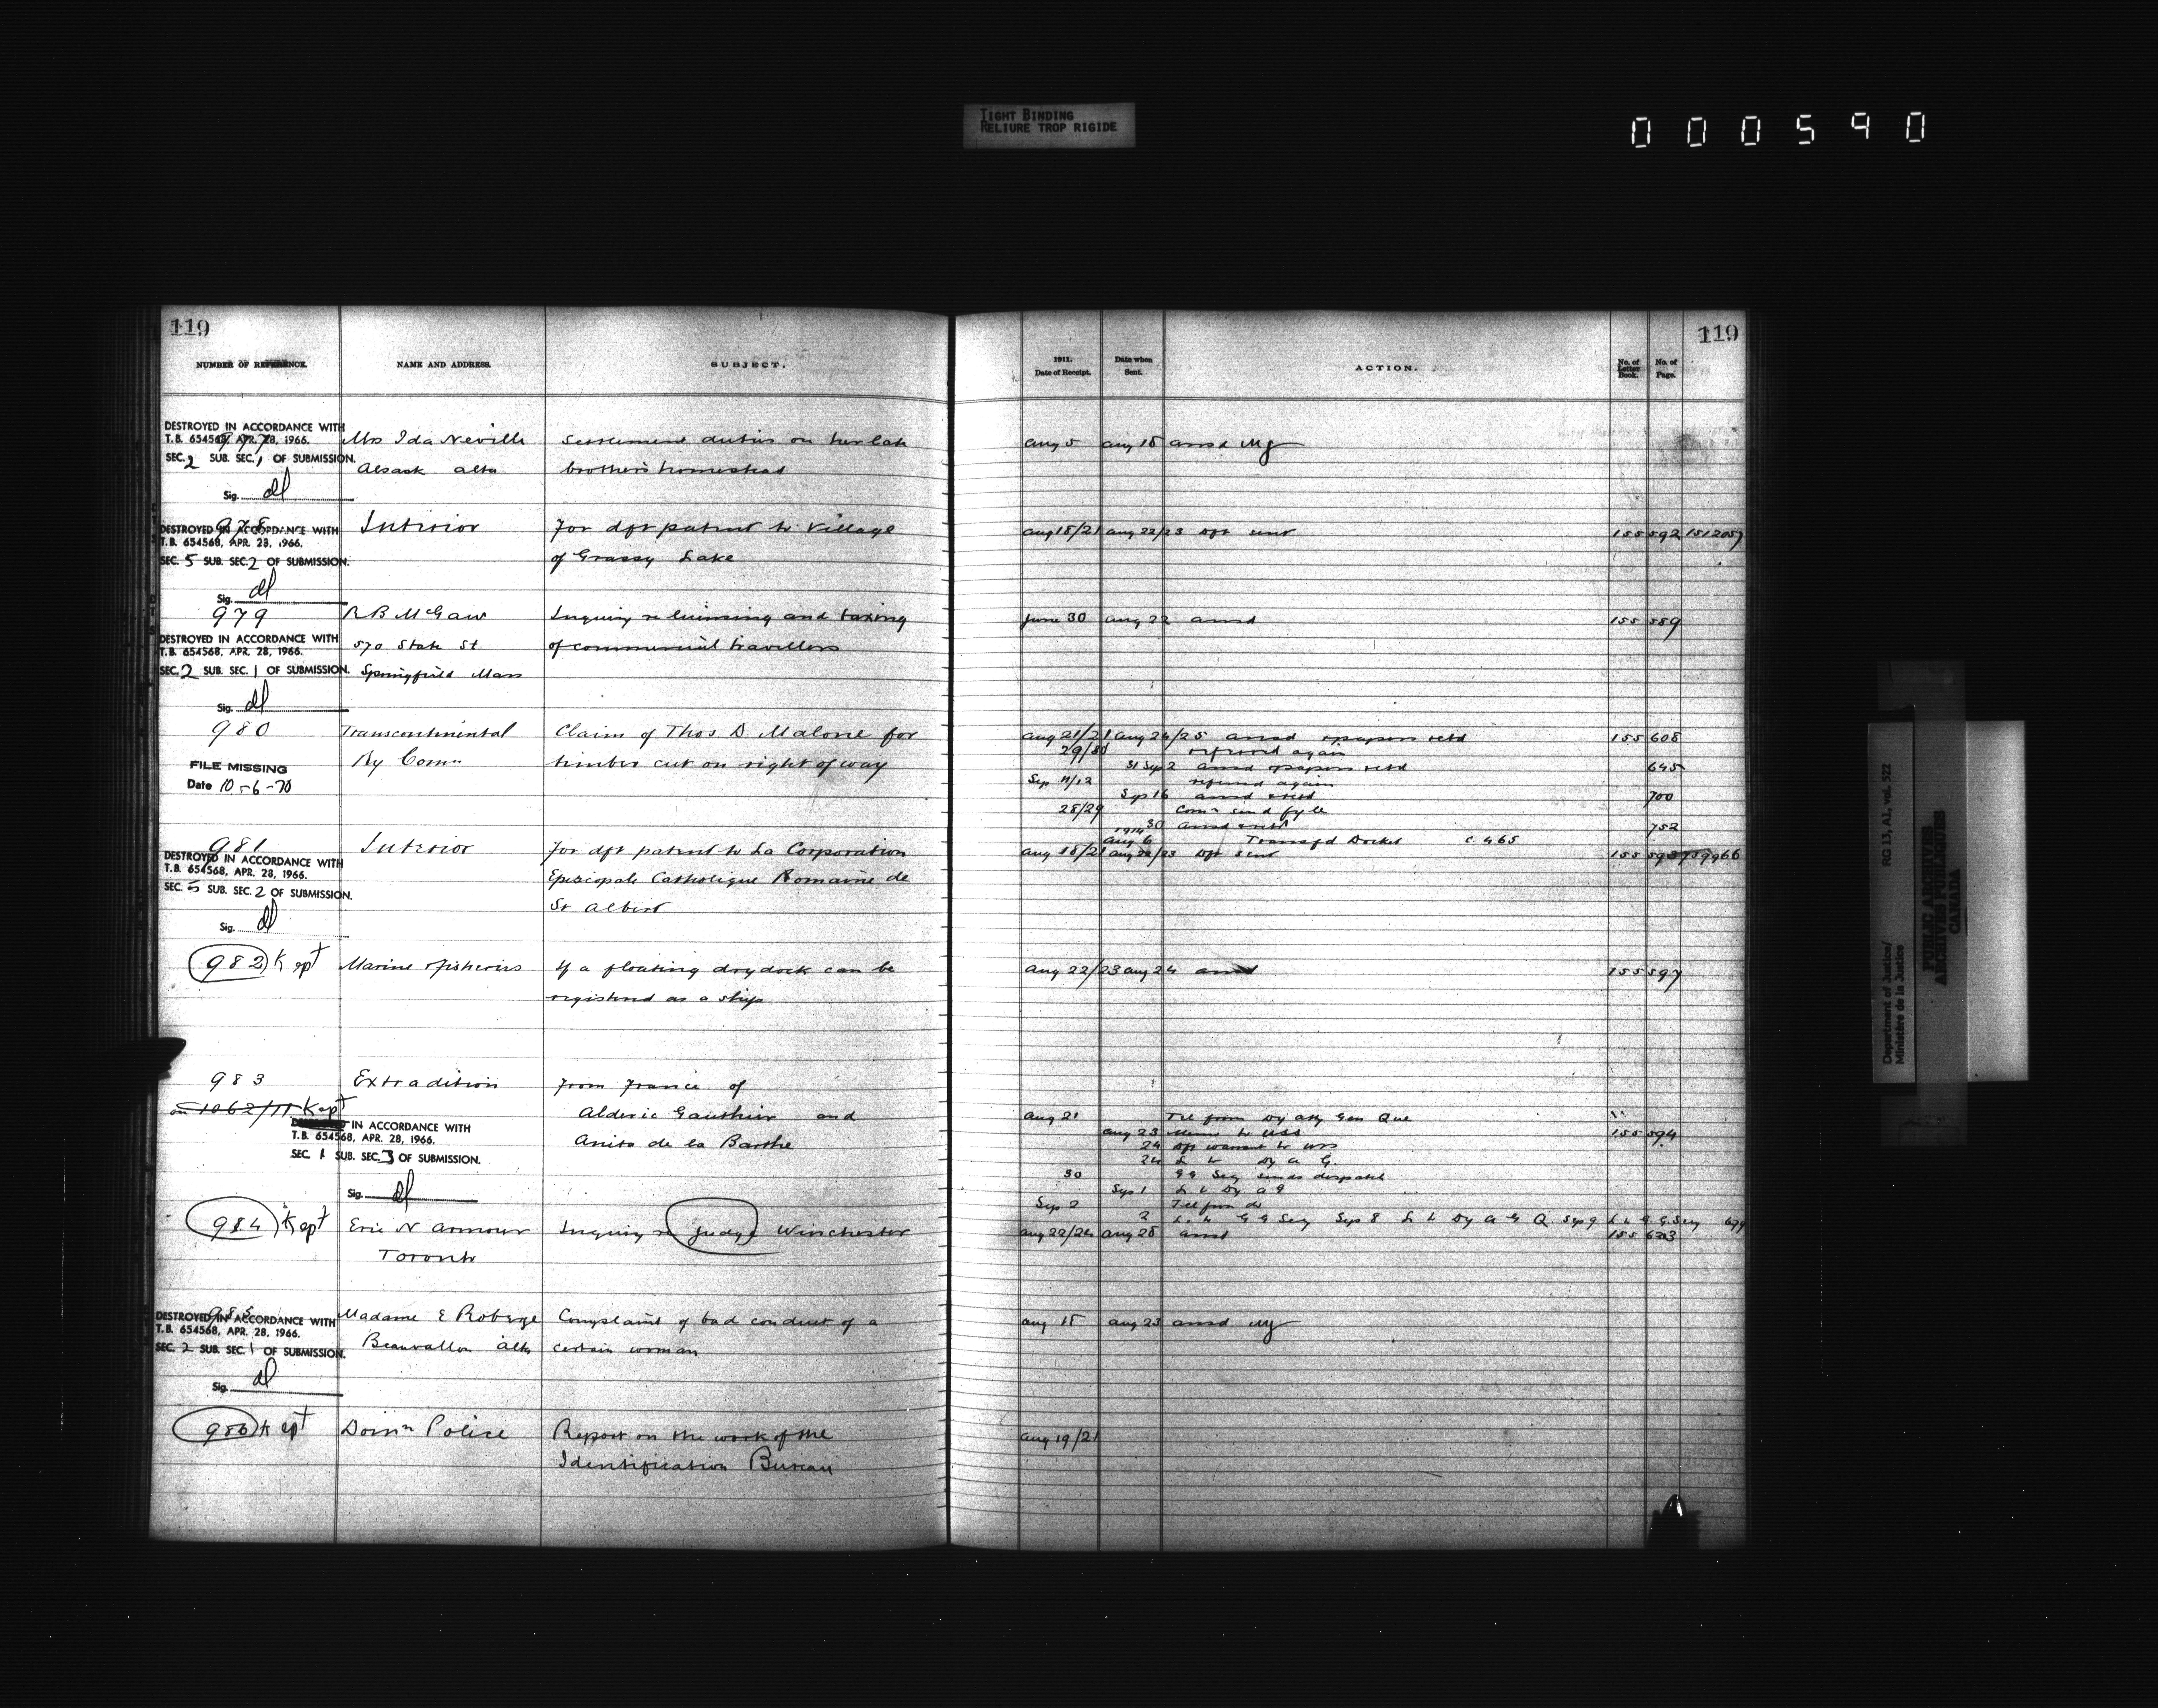 TIGHT BINDING
RELIURE TROP RIGIDE
000590
119
NUMBER OF REFERENCE. NAME AND ADDRESS. SUBJECT.
DESTROYED IN ACCORDANCE WITH
T.B. 654568, APR. 28, 1966.
SEC. 2 SUB. SEC. 1 OF SUBMISSION.
Sig.
977 Mrs Ida Neville Settlement duties on her late
Alsask Alta brother's homestead
978 Interior For dft patent to Village
of Grassy Lake
DESTROYED IN ACCORDANCE WITH
T.B. 654568, APR. 28, 1966.
SEC. 5 SUB. SEC. 2 OF SUBMISSION.
Sig.
979 R B McGaw Inquiry re licensing and taxing
570 State St of commercial travellers
Springfield Mass
DESTROYED IN ACCORDANCE WITH
T.B. 654568, APR. 28, 1966.
SEC. 2 SUB. SEC. 1 OF SUBMISSION.
Sig.
980 Transcontinental Claim of Thos D. Malone for
Ry Comn timber cut on right of way
FILE MISSING
Date 10-6-70
981 Interior For dft patent to La Corporation
Episcopale Catholique Romaine de
St Albert
DESTROYED IN ACCORDANCE WITH
T.B. 654568, APR. 28, 1966.
SEC. 5 SUB. SEC. 2 OF SUBMISSION.
Sig.
982 Kept Marine & Fisheries If a floating drydock can be
registered as a ship
983 Extradition From France of
on 1062/11 Kept Alderic Gauthier and
Anita de la Barthe
IN ACCORDANCE WITH
T.B. 654568, APR. 28, 1966.
SEC. 1 SUB. SEC. 3 OF SUBMISSION.
Sig.
984 Kept Eric N Armour Inquiry re Judge Winchester
Toronto
985 Madame E Roberge Complaint of bad conduct of a
Beauvallon Alta certain woman
DESTROYED IN ACCORDANCE WITH
T.B. 654568, APR. 28, 1966.
SEC. 2 SUB. SEC. 1 OF SUBMISSION.
Sig.
986 Kept Domn Police Report on the work of the
Identification Bureau
119
1911. Date of Receipt. Date when Sent. ACTION. No. of Letter Book. No. of Page.
Aug 5 Aug 18 ansd
Aug 18/21 Aug 22/23 Dft sent 155 592 1512057
June 30 Aug 22 ansd 155 589
Aug 21/21 Aug 24/25 ansd & papers retd 155 608
29/30 referred again
31 Sep 2 ansd & papers retd 645
Sep 11/12 referred again
Sep 16 ansd & retd 700
28/29 Comn send fyle
30 ansd & retd 752
1914 Aug 6 Transfd Docket C. 465
Aug 18/21 Aug 22/23 Dft sent 155 593
Aug 22/23 Aug 24 ansd 155 597
Aug 21 Tel from Dy Atty Gen Que
Aug 23 Memo to USS 155 594
24 Dft warrant to USS
24 L to Dy A G.
30 GG Secy sends despatch
Sep 1 L to Dy A G
Sep 2 Tel from do
2 L to G G Secy Sep 8 L to Dy A G Q. Sep 9 L to G.G.Secy 679
Aug 22/24 Aug 28 ansd 155 623
Aug 15 Aug 23 ansd
Aug 19/21
Department of Justice/
Ministère de la Justice
RG 13, A1, vol. 522
PUBLIC ARCHIVES
ARCHIVES PUBLIQUES
CANADA